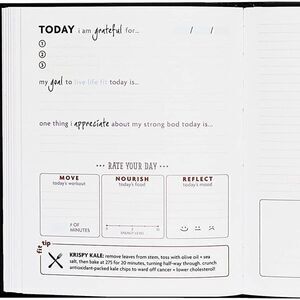 TODAY i am grateful for... / /
1
2
3
my goal to live life fit today is...
one thing i appreciate about my strong bod today is...
RATE YOUR DAY
MOVE NOURISH REFLECT
today's workout today's food today's mood
# OF
MINUTES
ENERGY LEVEL
fit tip
KRISPY KALE: remove leaves from stem, toss with olive oil + sea
salt, then bake at 275 for 20 minutes, turning half-way through. crunch
antioxidant-packed kale chips to ward off cancer + lower cholesterol!